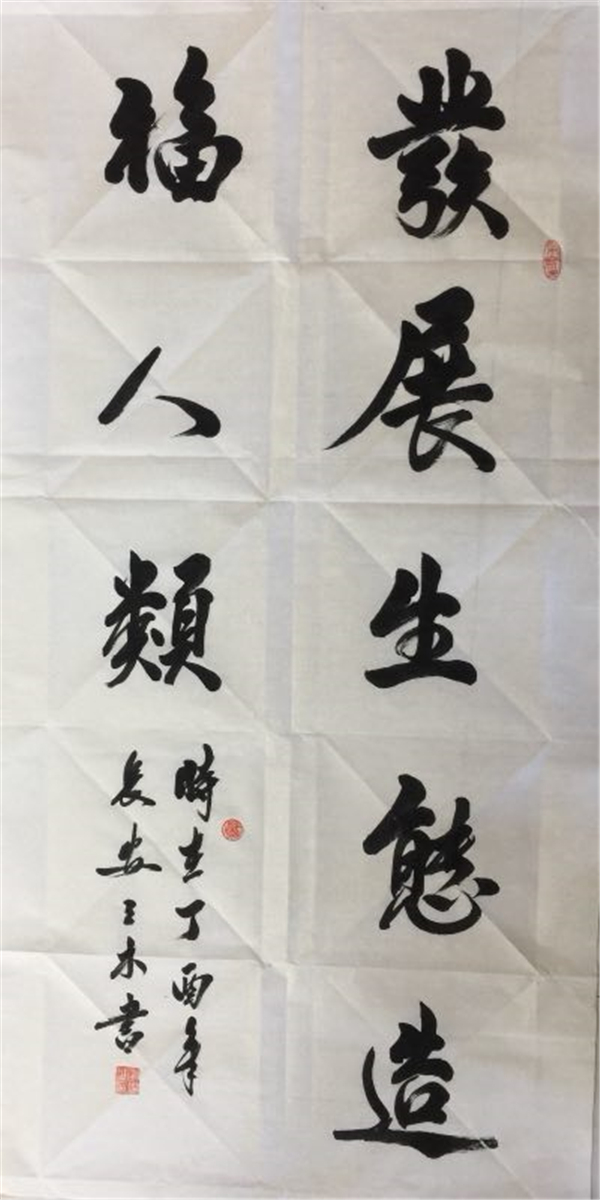 發展生態造
福人類
時在丁酉年
長安三木書